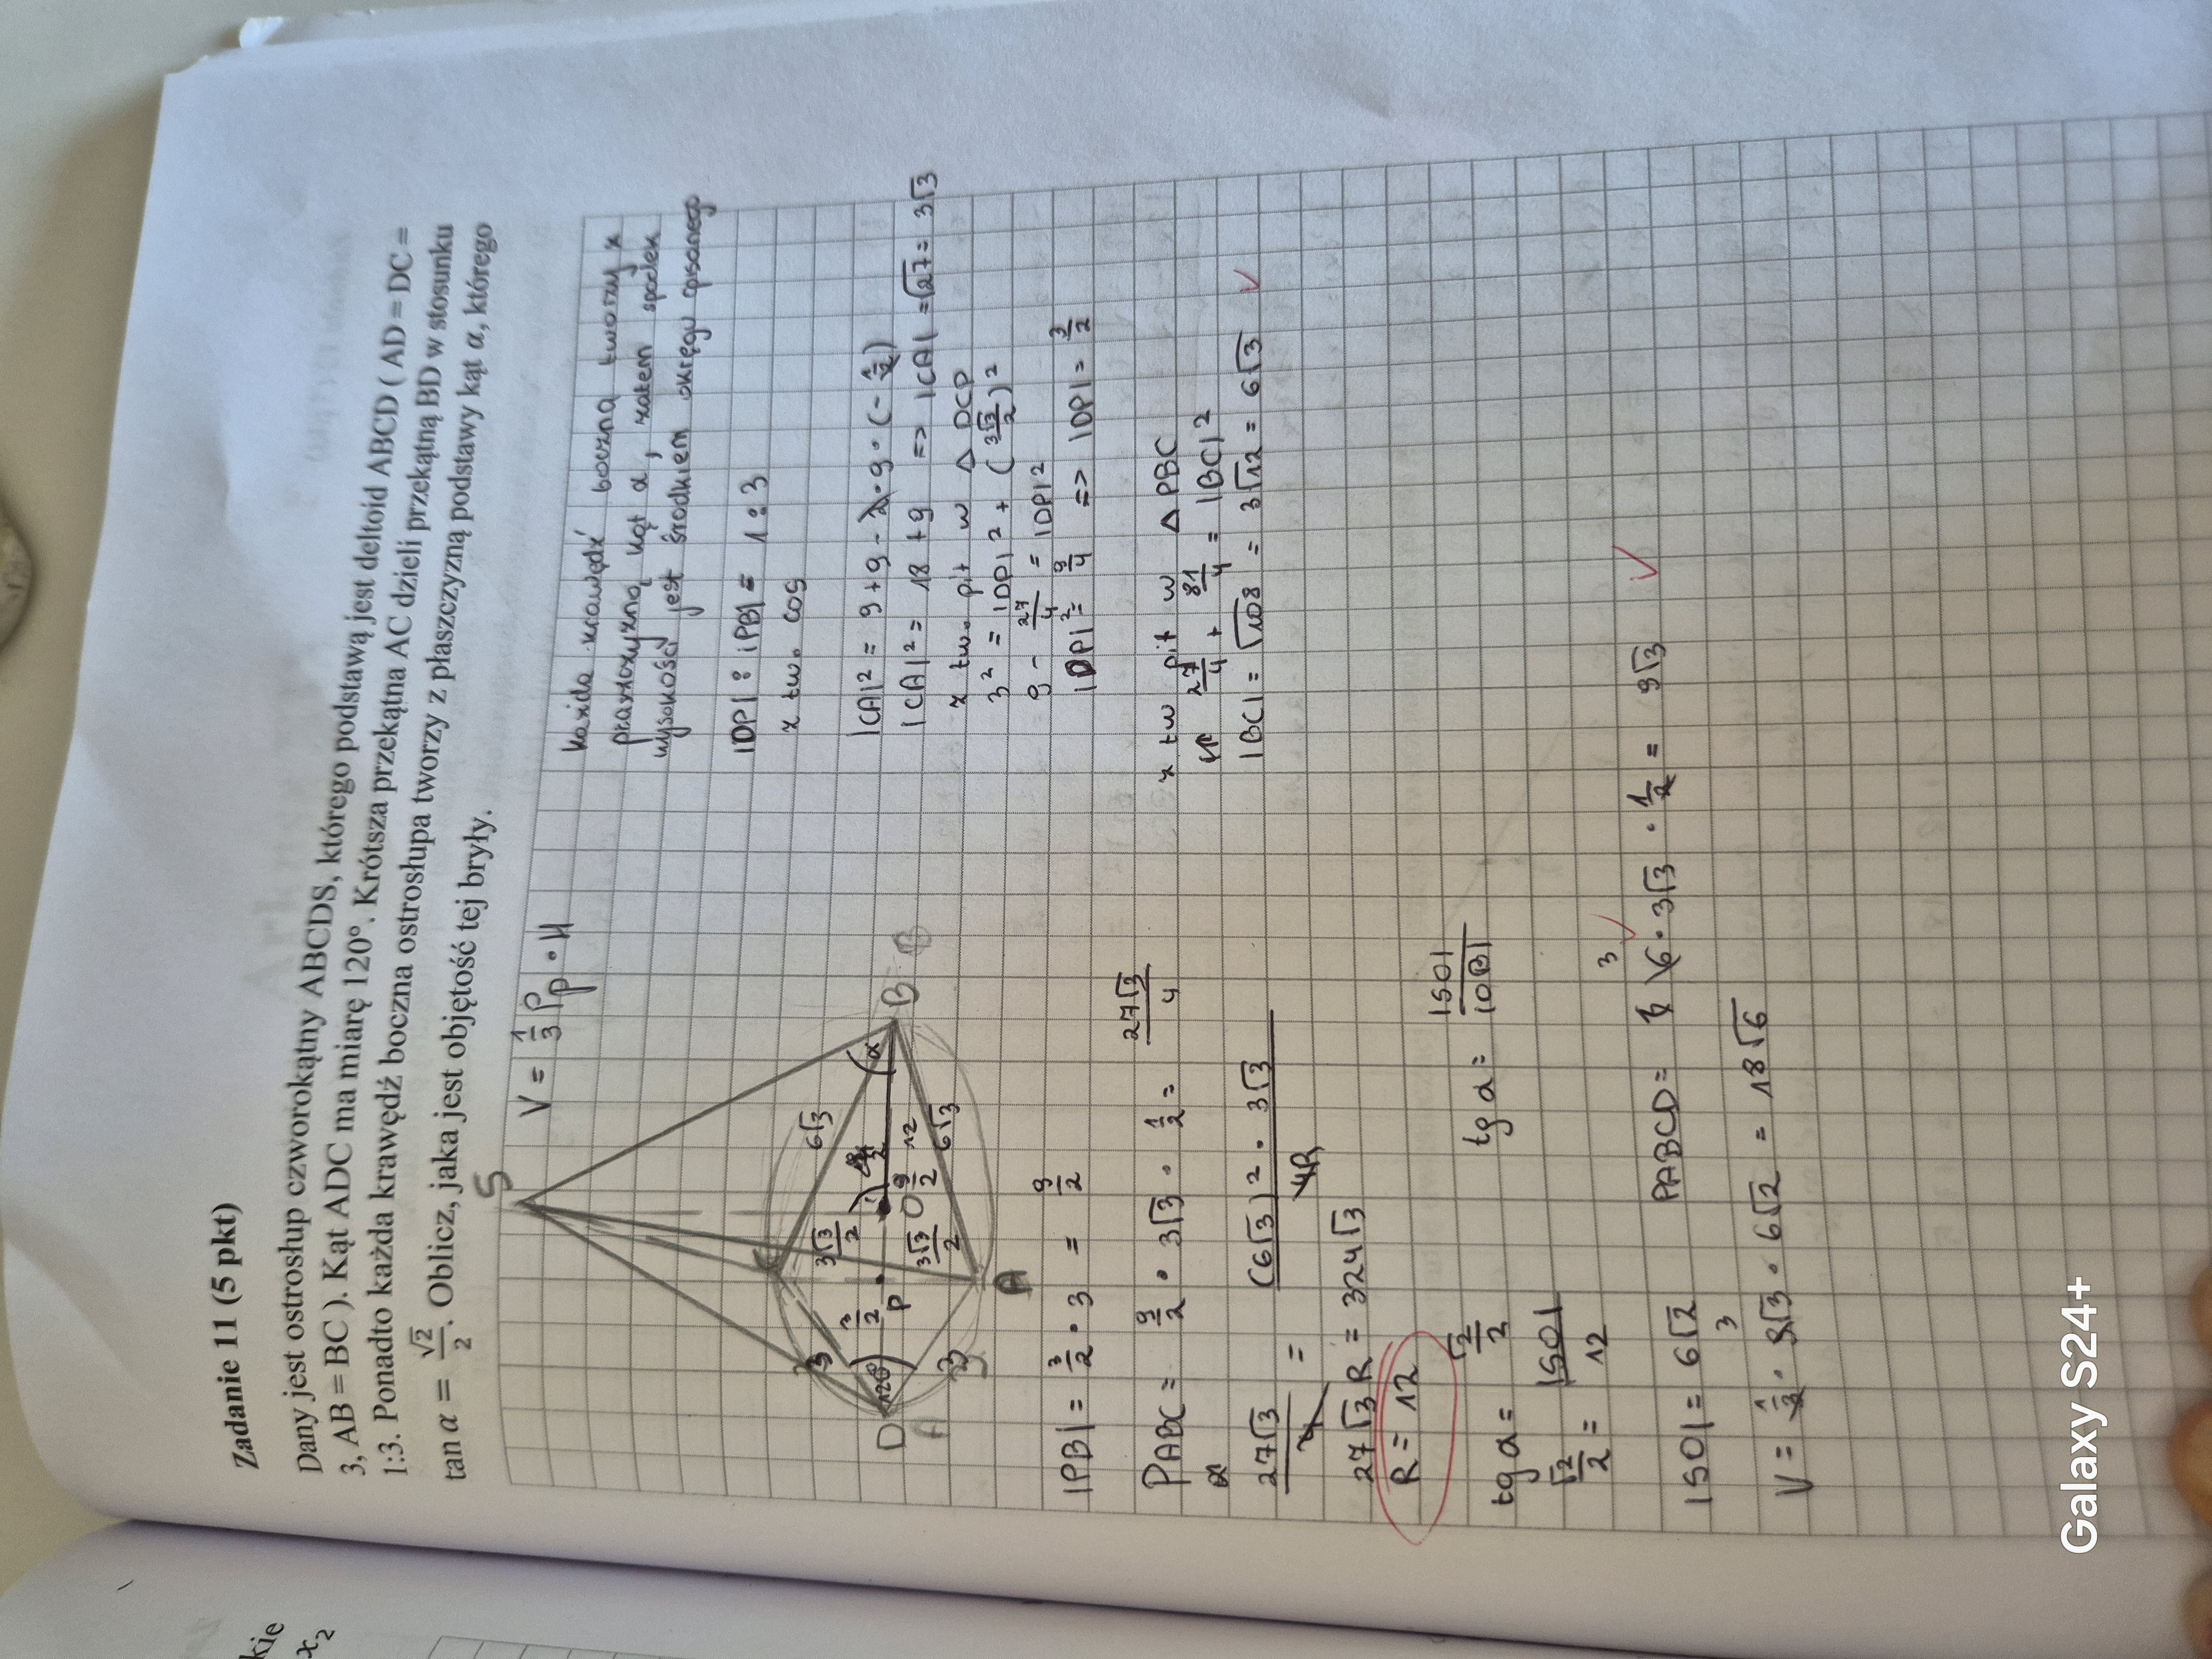 Zadanie 11 (5 pkt)
Dany jest ostrosłup czworokątny ABCDS, którego podstawą jest deltoid ABCD ( AD = DC =
3, AB = BC ). Kąt ADC ma miarę 120°. Krótsza przekątna AC dzieli przekątną BD w stosunku
1:3. Ponadto każda krawędź boczna ostrosłupa tworzy z płaszczyzną podstawy kąt α, którego
tan α = √2/2. Oblicz, jaka jest objętość tej bryły.
V = 1/3 Pp · H
S
D
A
B
B
A
P
O
α
120°
3
3
3/2
3√3/2
3√3/2
9/2
12
6√3
6√3
każda krawędź boczna tworzy z
płaszczyzną kąt α, zatem spodek
wysokości jest środkiem okręgu opisanego
|DP| : |PB| = 1 : 3
z tw. cos
|CA|² = 9 + 9 - 2 · 9 · (-1/2)
|CA|² = 18 + 9 => |CA| = √27 = 3√3
z tw. pit w △ DCP
3² = |DP|² + (3√3/2)²
9 - 27/4 = |DP|²
|DP|² = 9/4 => |DP| = 3/2
z tw pit w △ PBC
27/4 + 81/4 = |BC|²
|BC| = √108 = 3√12 = 6√3
|PB| = 3/2 · 3 = 9/2
PABC = 9/2 · 3√3 · 1/2 = 27√3/4
27√3/4 = (6√3)² · 3√3/4R
27√3R = 324√3
R = 12
tg α = √2/2
tg α = |SO|/|OB|
√2/2 = |SO|/12
|SO| = 6√2
PABCD = 6 · 3√3 · 1/2 = 9√3
3
V = 1/3 · 9√3 · 6√2 = 18√6
3
kie
x₂
Galaxy S24+